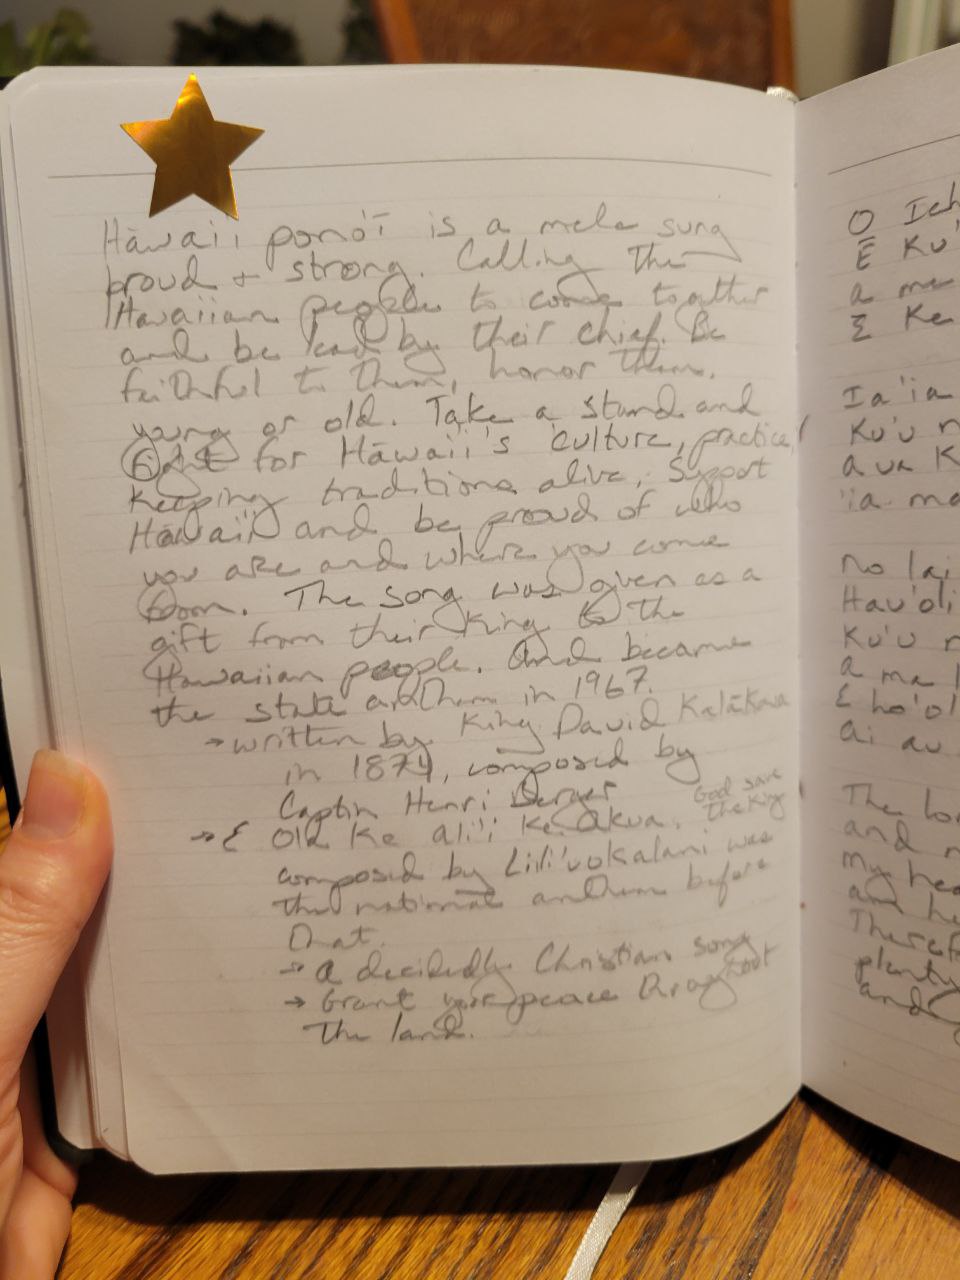 Hāwai'i ponoʻī is a mele sung
proud + strong. Calling the
Hawaiian people to come together
and be lead by their chief. Be
faithful to them, honor them.
young or old. Take a stand and
fight for Hāwai'i's culture, practice,
keeping traditions alive, Support
Hāwai'i and be proud of who
you are and where you come
from. The song was given as a
gift from their King to the
Hawaiian people. And became
the state anthem in 1967.
→ written by King David Kalākaua
in 1874, composed by
Captin Henri Berger
God save
the King
→ E Ola Ke Ali'i Ke Akua.
composed by Lili'uokalani was
the national anthem before
that.
→ a decidedly Christian song
→ Grant your peace throughout
the land.
O
E Ku'
a me
E Ke
Ia 'ia
Ku'u
a ua K
'ia ma
no lai
Hau'oli
Ku'u
a ma
E ho'ol
ai au
The
and
my
and
plenty
and